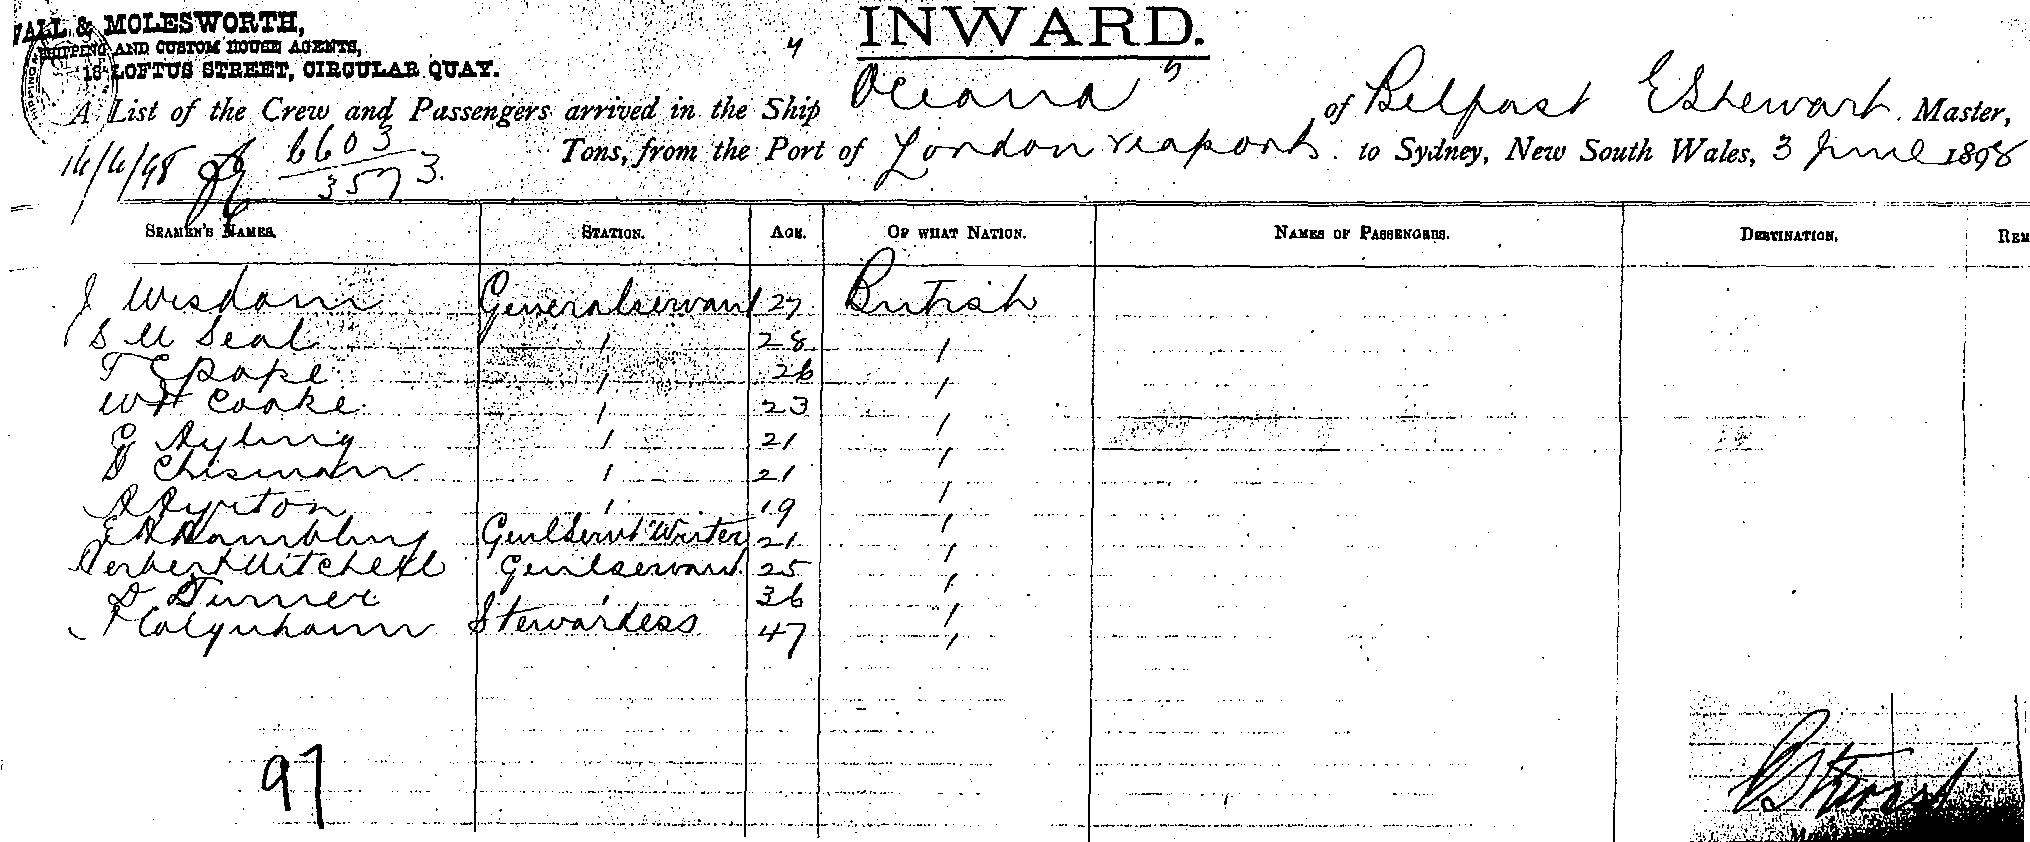 WALL & MOLESWORTH,
SHIPPING AND CUSTOM HOUSE AGENTS,
13 LOFTUS STREET, CIRCULAR QUAY.
INWARD.
A List of the Crew and Passengers arrived in the Ship "Oceana" of Belfast E Stewart. Master,
14/4/98 6603 / 3573. Tons, from the Port of London via ports. to Sydney, New South Wales, 3 June 1898
SEAMEN'S NAMES. STATION. AGE. OF WHAT NATION. NAMES OF PASSENGERS. DESTINATION. REM
J Wisdom General servant 27 British
S M Seal " 28 "
T E Pope " 26 "
W H Cooke " 23 "
G Ayling " 21 "
D Chisman " 21 "
A Ayrton " 19 "
E A Hambling Genl Servt Writer 21 "
Herbert Mitchell Genl servant 25 "
D Turner " 36 "
Stewardess 47 "
97